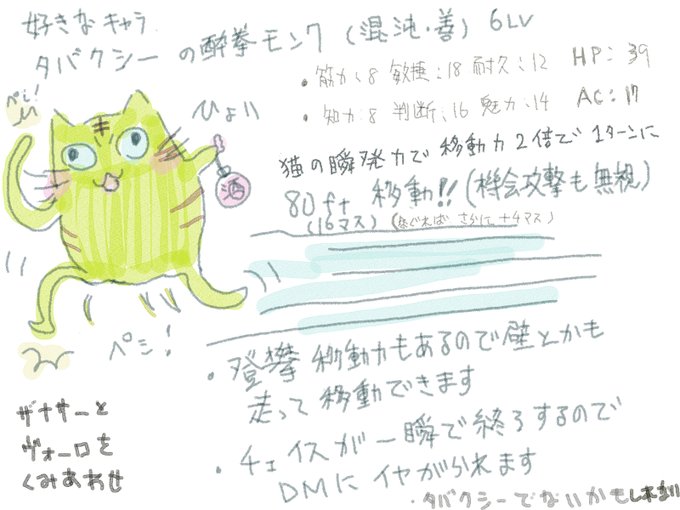 好きなキャラ
タバクシーの酔拳モンク(混沌・善) 6LV
・筋力:8 敏捷:18 耐久:12 HP:39
・知力:8 判断:16 魅力:14 AC:17
ぺし!
ひょい
酒
猫の瞬発力で移動力2倍で1ターンに
80ft 移動!!(機会攻撃も無視)
(16マス)
さらに+4マス)
ペシ!
・登攀移動力もあるので壁とかも
走って移動できます
・チェイスが一瞬で終了するので
DMにイヤがられます
ザナサーと
ヴォーロを
くみあわせ
・タバクシーでないかも